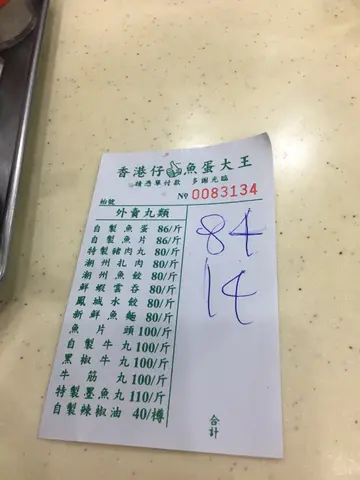 香港仔魚蛋大王
積憑單付款 多謝光臨
枱號
№ 0083134
外賣丸類
自製魚蛋 86/斤
自製魚片 86/斤
特製豬肉丸 80/斤
潮州扎肉 80/斤
潮州魚餃 80/斤
鮮蝦雲吞 80/斤
鳳城水餃 80/斤
新鮮魚麵 80/斤
魚片頭 100/斤
自製牛丸 100/斤
黑椒牛丸 100/斤
牛筋丸 100/斤
特製墨魚丸 110/斤
自製辣椒油 40/樽
84
14
合計